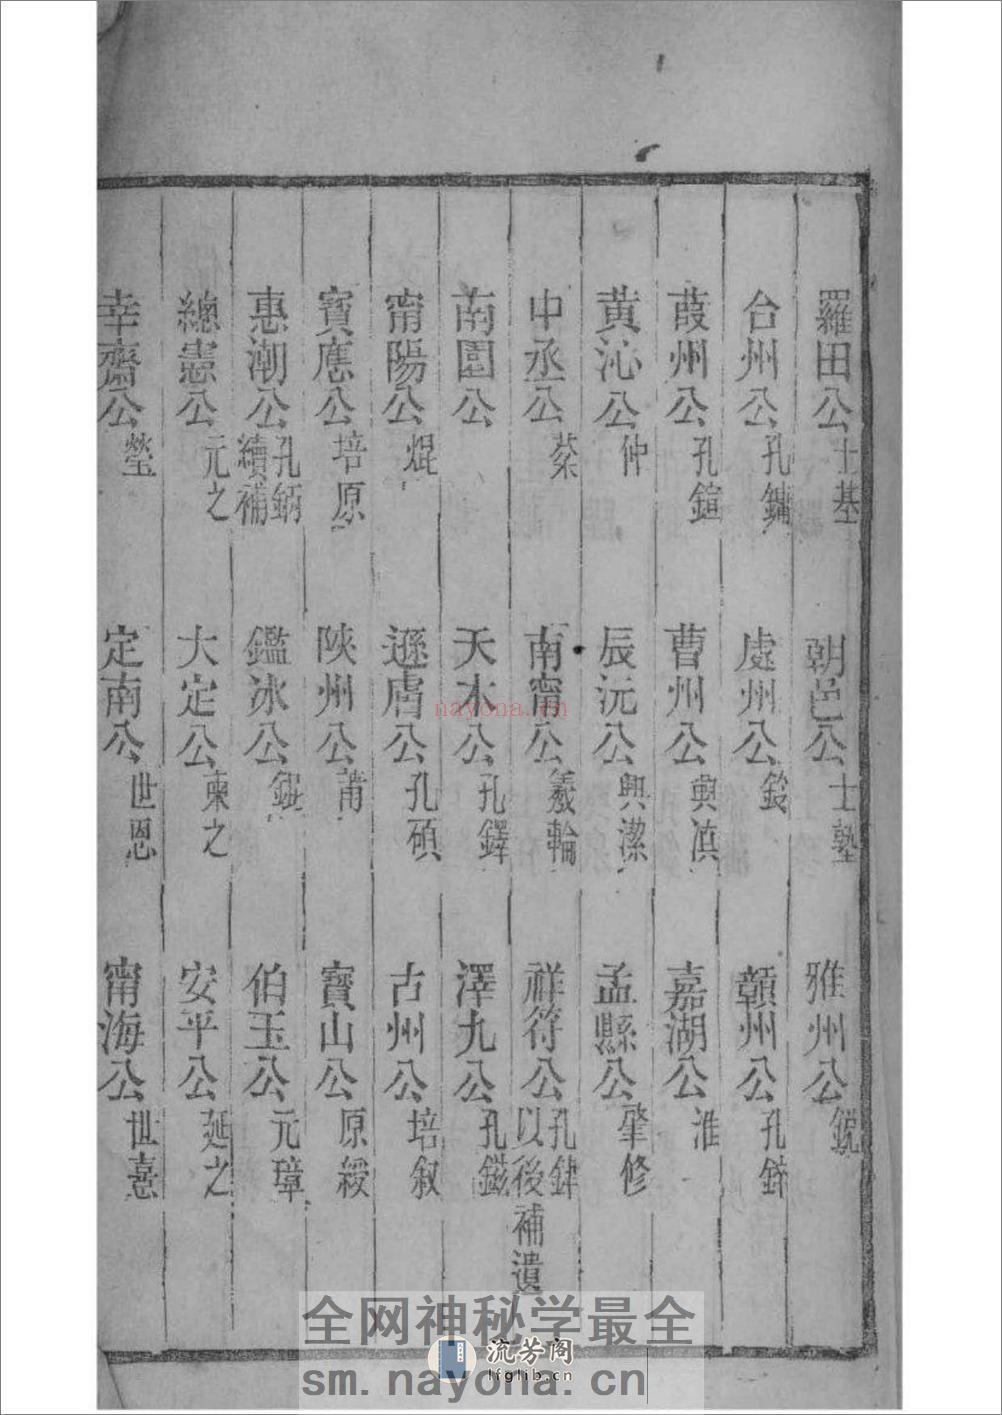 羅田公 士基 朝邑公 士塾 雅州公 銳
台州公 孔鏞 處州公 鈫 贛州公 孔
葭州公 孔鍹 曹州公 興滇 嘉湖公 淮
黄沁公 仲 辰沅公 興潔 孟縣公 肇修
中丞公 棻 南甯公 羲輪 祥符公 孔 以後補遺
南園公 天木公 孔鐸 澤九公 孔鎡
甯陽公 焜 遜膚公 孔碩 古州公 培叙
寶應公 培原 陝州公 莆 寶山公 原綬
惠潮公 孔鈵 續補 鑑冰公 鋌 伯玉公 元璋
總憲公 元之 大定公 柬之 安平公 延之
幸齋公 瑩 定南公 世恩 甯海公 世憙
nayona.cn
全网神秘学最全
流芳阁
lfglib.cn
sm.nayona.cn